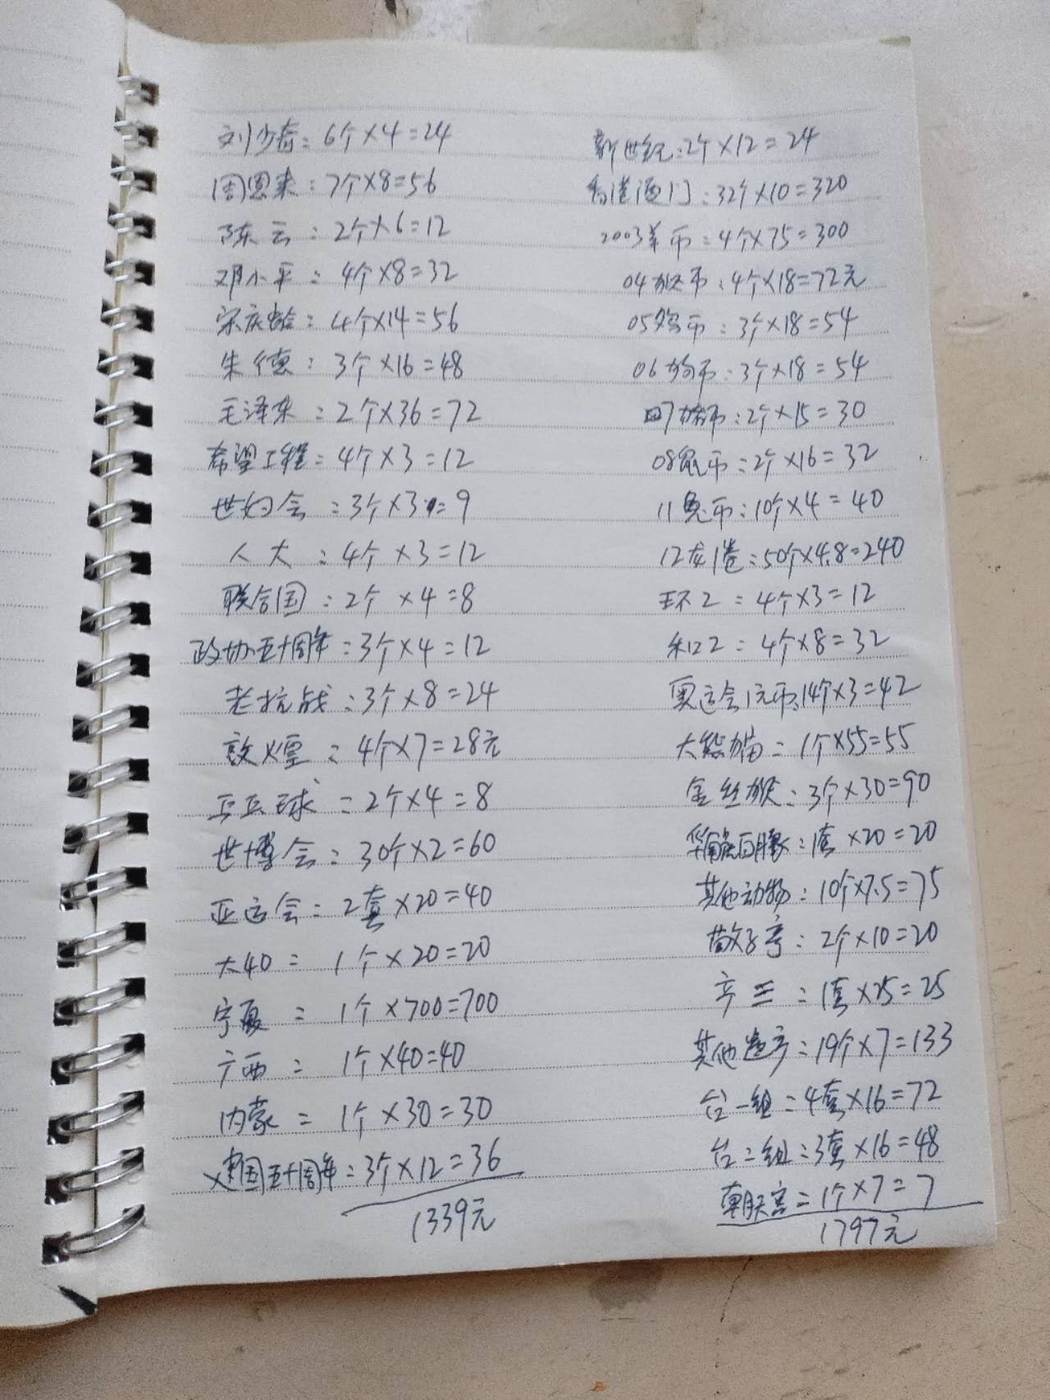 刘少奇：6个×4=24
周恩来：7个×8=56
陈云：2个×6=12
邓小平：4个×8=32
宋庆龄：4个×14=56
朱德：3个×16=48
毛泽东：2个×36=72
希望工程：4个×3=12
世妇会：3个×3=9
人大：4个×3=12
联合国：2个×4=8
政协五十周年：3个×4=12
老抗战：3个×8=24
敦煌：4个×7=28元
乒乓球：2个×4=8
世博会：30个×2=60
亚运会：2套×20=40
大40：1个×20=20
宁夏：1个×700=700
广西：1个×40=40
内蒙：1个×30=30
建国五十周年：3个×12=36
1339元
新世纪：2个×12=24
香港澳门：32个×10=320
2003羊币：4个×75=300
04猴币：4个×18=72元
05鸡币：3个×18=54
06狗币：3个×18=54
07猪币：2个×15=30
08鼠币：2个×16=32
11兔币：10个×4=40
12龙1卷：50个×4.8=240
环2：4个×3=12
和2：4个×8=32
奥运会1元币：14个×3=42
大熊猫：1个×55=55
金丝猴：3个×30=90
华南虎白暨豚：1套×20=20
其他动物：10个×7.5=75
散3亭：2个×10=20
亭三：1套×25=25
其他遗产：19个×7=133
台一组：4套×16=72
台二组：3套×16=48
朝天宫：1个×7=7
1797元